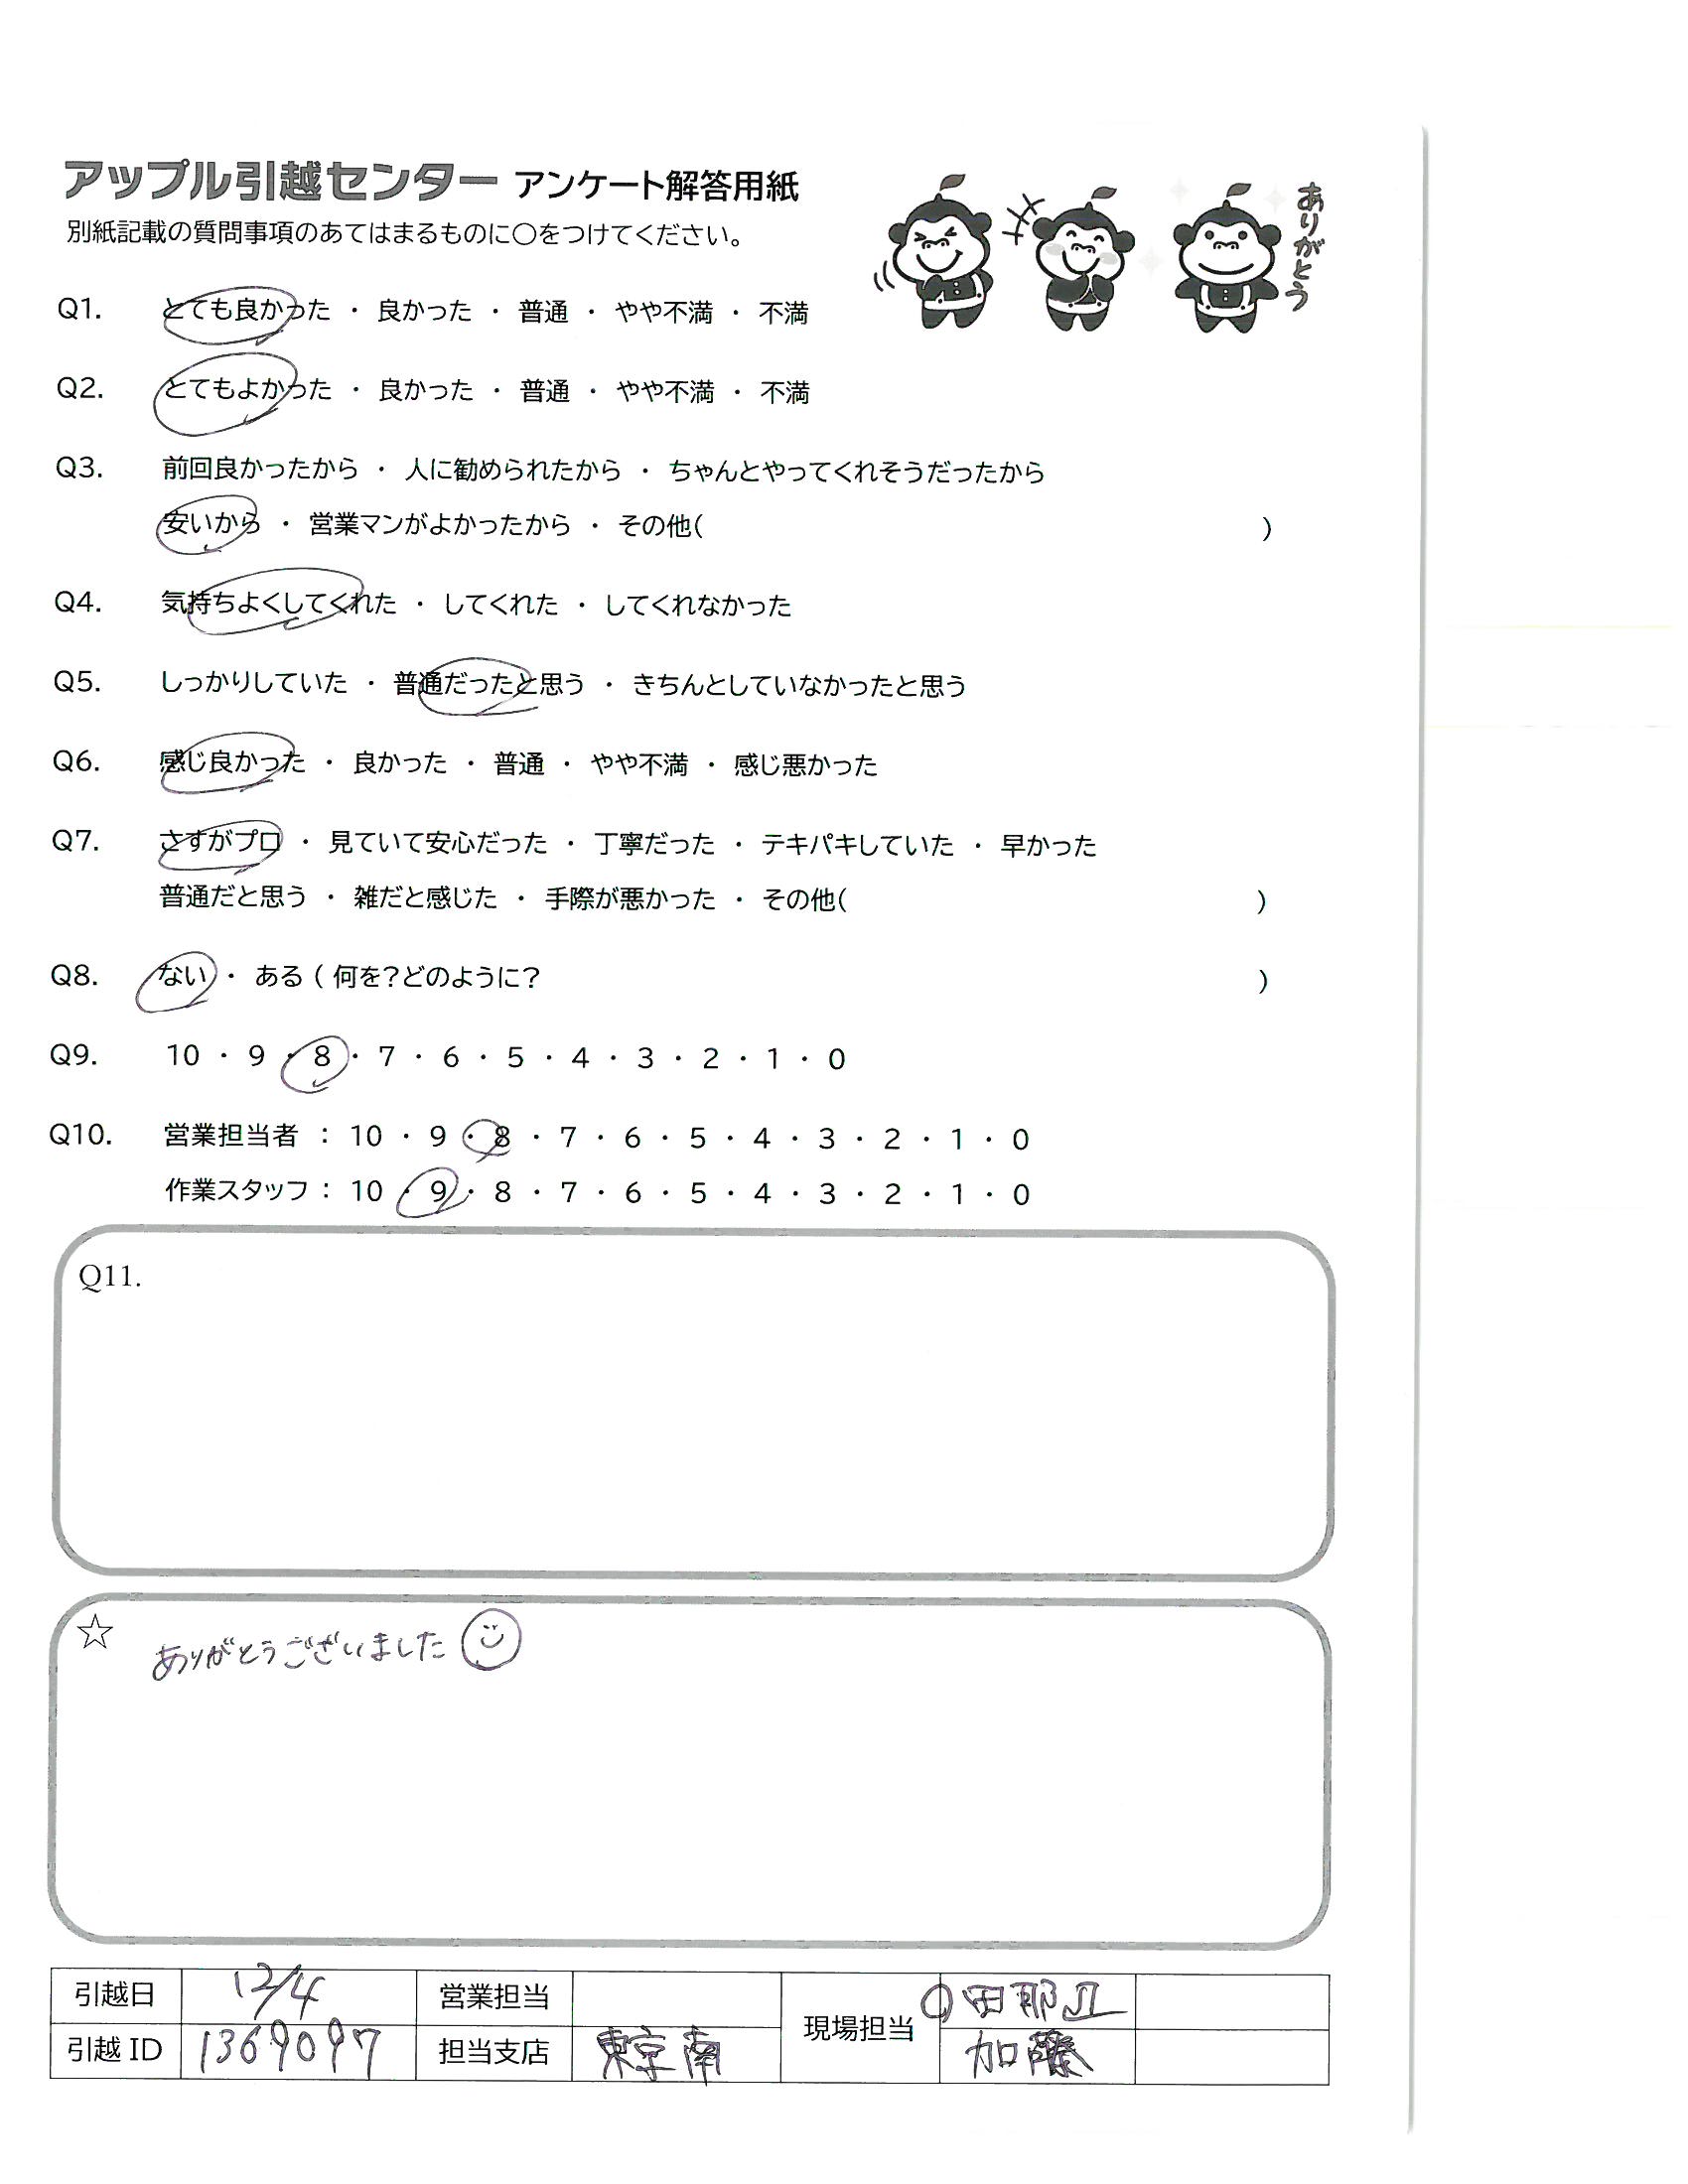 アップル引越センター アンケート解答用紙
別紙記載の質問事項のあてはまるものに○をつけてください。
ありがとう
Q1. とても良かった ・ 良かった ・ 普通 ・ やや不満 ・ 不満
Q2. とてもよかった ・ 良かった ・ 普通 ・ やや不満 ・ 不満
Q3. 前回良かったから ・ 人に勧められたから ・ ちゃんとやってくれそうだったから
安いから ・ 営業マンがよかったから ・ その他( )
Q4. 気持ちよくしてくれた ・ してくれた ・ してくれなかった
Q5. しっかりしていた ・ 普通だったと思う ・ きちんとしていなかったと思う
Q6. 感じ良かった ・ 良かった ・ 普通 ・ やや不満 ・ 感じ悪かった
Q7. さすがプロ ・ 見ていて安心だった ・ 丁寧だった ・ テキパキしていた ・ 早かった
普通だと思う ・ 雑だと感じた ・ 手際が悪かった ・ その他( )
Q8. ない ・ ある ( 何を?どのように? )
Q9. 10 ・ 9 ・ 8 ・ 7 ・ 6 ・ 5 ・ 4 ・ 3 ・ 2 ・ 1 ・ 0
Q10. 営業担当者 : 10 ・ 9 ・ 8 ・ 7 ・ 6 ・ 5 ・ 4 ・ 3 ・ 2 ・ 1 ・ 0
作業スタッフ : 10 ・ 9 ・ 8 ・ 7 ・ 6 ・ 5 ・ 4 ・ 3 ・ 2 ・ 1 ・ 0
Q11.
☆ ありがとうございました
引越日 12/4 営業担当 現場担当 田耶
引越 ID 1369097 担当支店 東京南 加藤